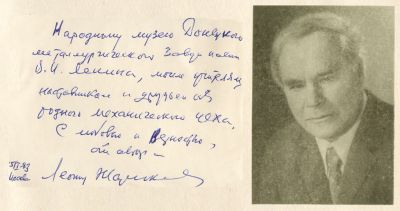 Народному музею Донецкого
металлургического завода имени
В.И. Ленина, моим учителям,
наставникам и друзьям из
родного механического цеха,
С любовью и
от автора —
Москва Леонид Жариков